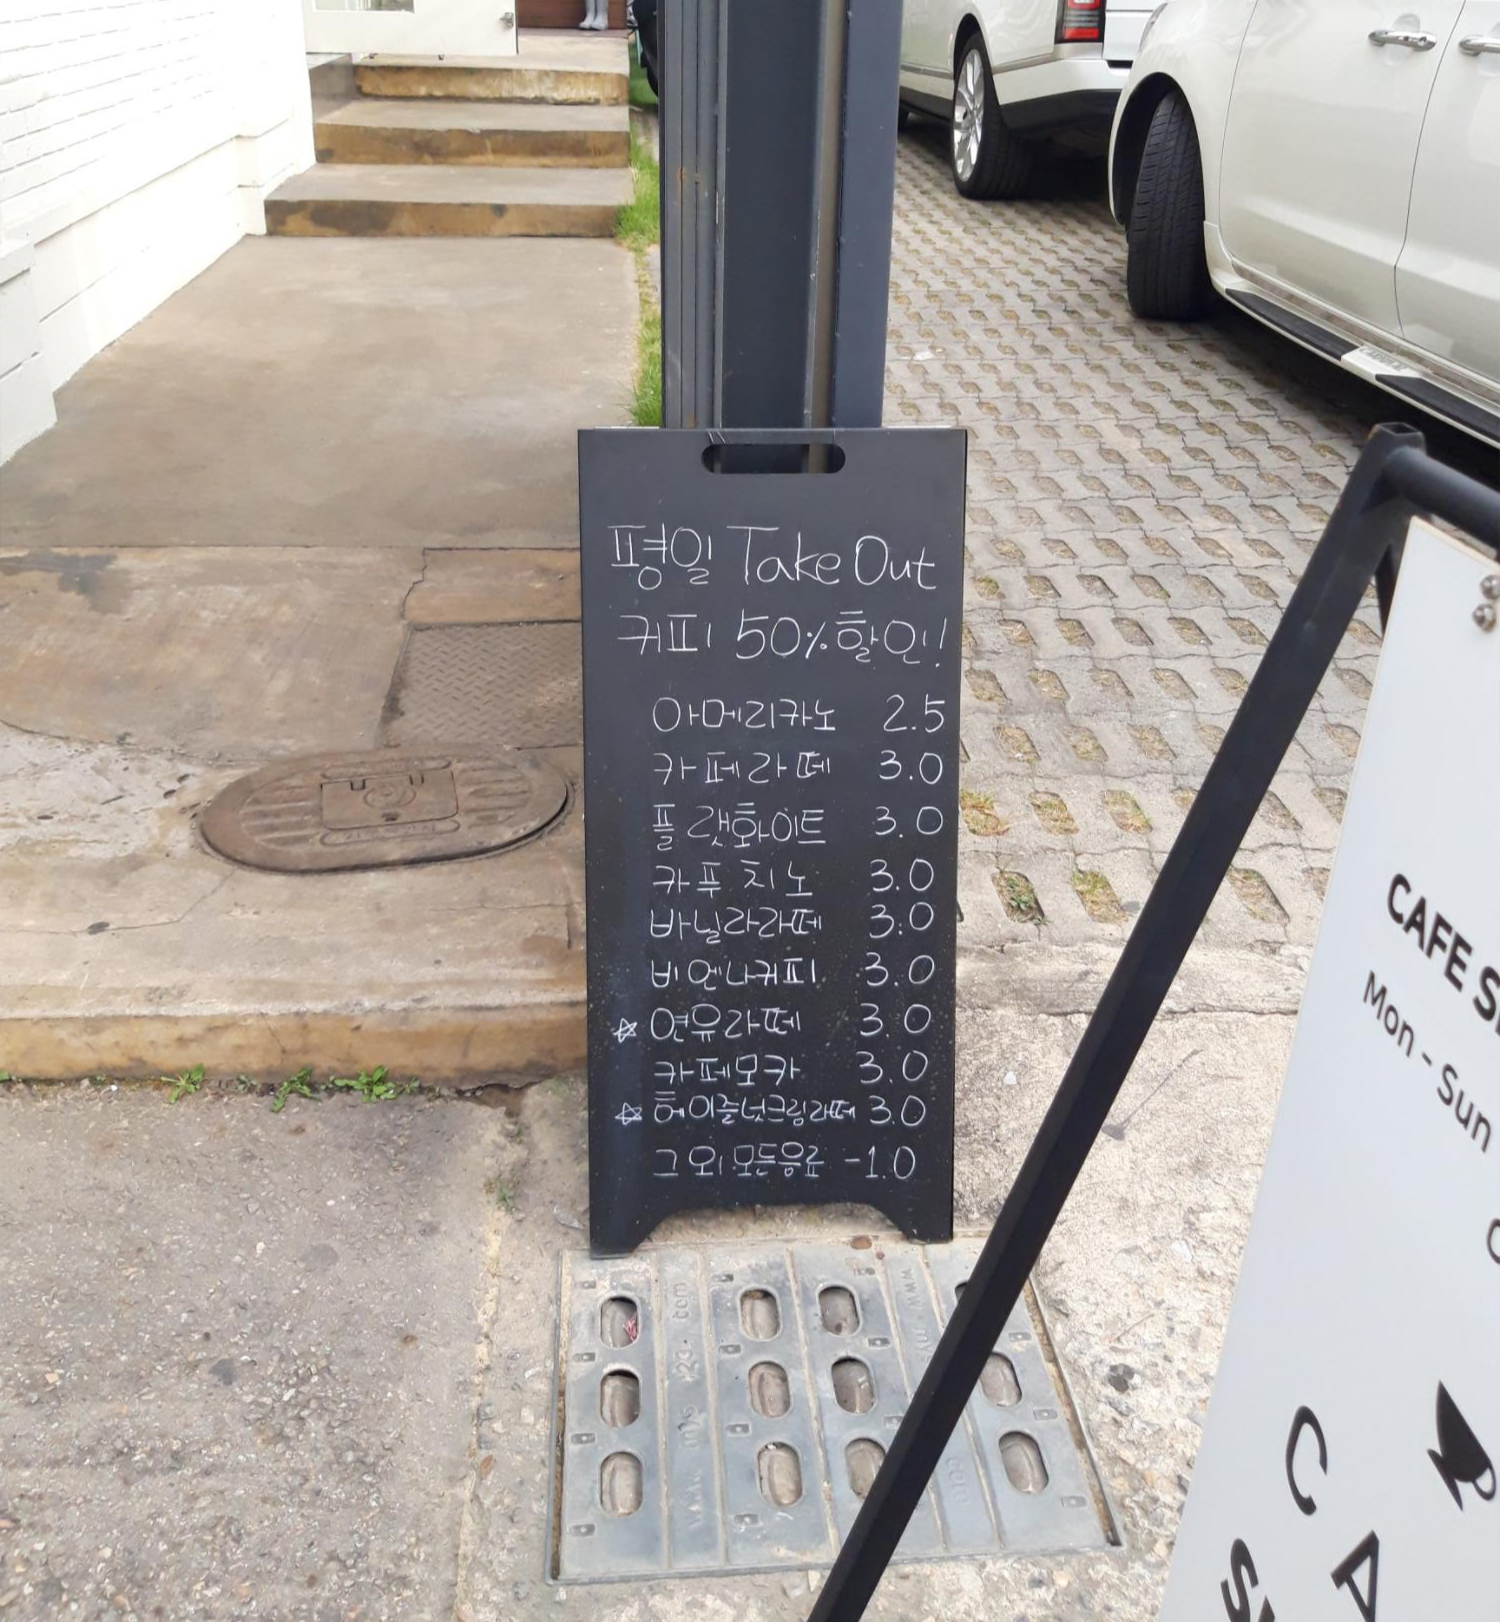 평일 Take Out
커피 50% 할인!
아메리카노 2.5
카페라떼 3.0
플랫화이트 3.0
카푸치노 3.0
바닐라라떼 3.0
비엔나커피 3.0
☆ 연유라떼 3.0
카페모카 3.0
☆ 헤이즐넛크림라떼 3.0
그 외 모든음료 -1.0
CAFE
Mon - Sun
C A